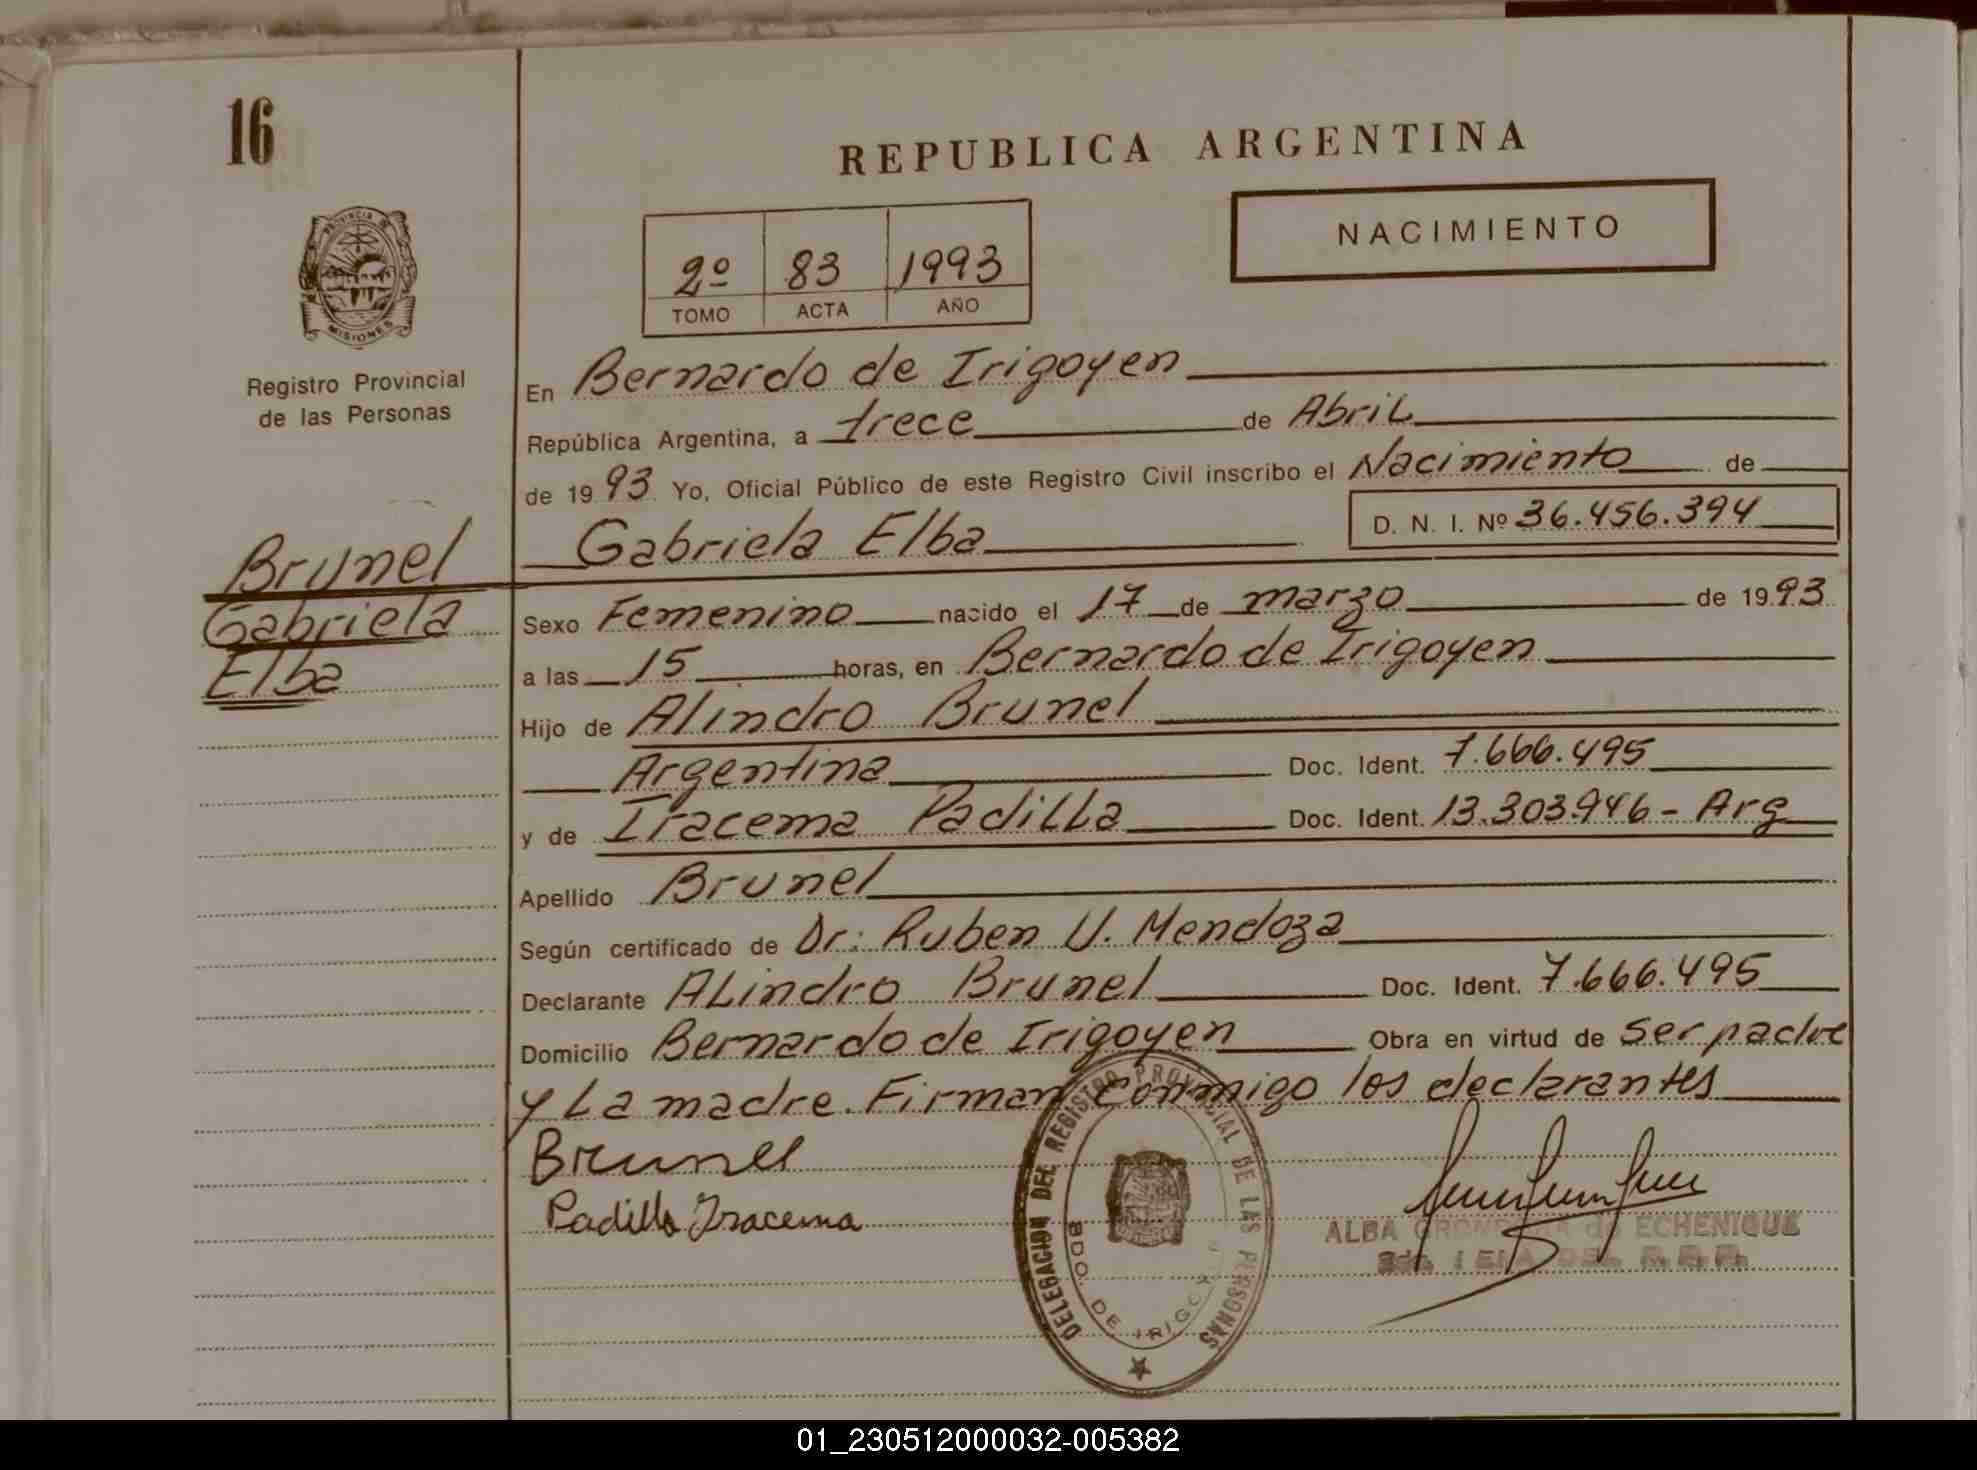 16
REPUBLICA ARGENTINA
NACIMIENTO
2º 83 1993
TOMO ACTA AÑO
PROVINCIA DE
MISIONES
Registro Provincial
de las Personas
En Bernardo de Irigoyen
República Argentina, a trece de Abril
de 1993 Yo, Oficial Público de este Registro Civil inscribo el Nacimiento de
Gabriela Elba D. N. I. Nº 36.456.394
Brunel
Gabriela
Elba
Sexo Femenino nacido el 17 de marzo de 1993
a las 15 horas, en Bernardo de Irigoyen
Hijo de Alindro Brunel
Argentina Doc. Ident. 7.666.495
y de Iracema Padilla Doc. Ident. 13.303.946 - Arg
Apellido Brunel
Según certificado de Dr: Ruben U. Mendoza
Declarante Alindro Brunel Doc. Ident. 7.666.495
Domicilio Bernardo de Irigoyen Obra en virtud de ser padre
y La madre. Firman conmigo los declarantes
Brunel
Padilla Iracema
DELEGACION DEL REGISTRO PROVINCIAL DE LAS PERSONAS
BDO. DE IRIGOYEN
ALBA de ECHENIQUE
DEL R.P.P.
01_230512000032-005382